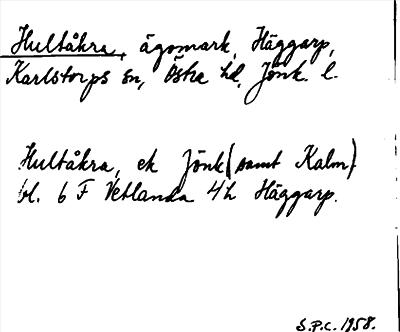 Hultåkra, ägomark, Häggarp,
Karlstorps sn, Östra hd, Jönk. l.
Hultåkra, ek Jönk (samt Kalm)
bl. 6 F Vetlanda 4h Häggarp.
S.P.C. 1958.